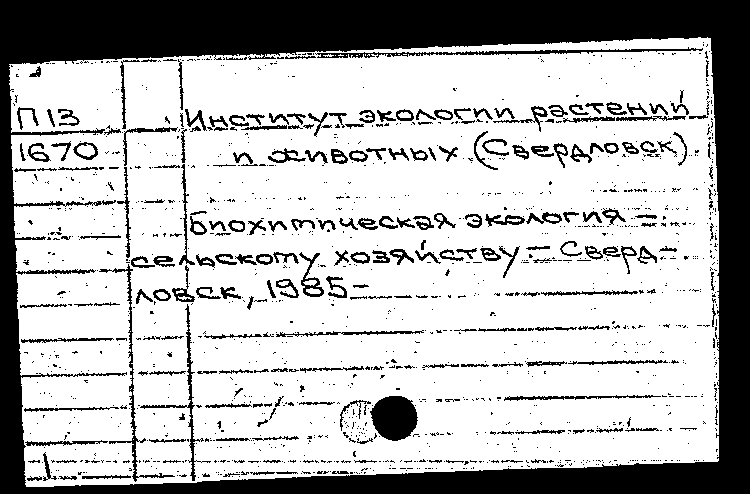 П13 Институт экологии растений
1670 и животных (Свердловск).
Биохимическая экология –
сельскому хозяйству. – Сверд-
ловск, 1985–